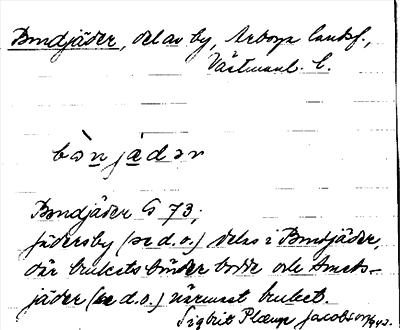 Bondjäder, del av by, Arboga landsf.,
Västmanl. l.
bòn jä̀dər
Bondjäder G 73;
Jädersby (se d.o.) delas i Bondjäder,
där brukets bönder bodde och Smeds-
jäder (se d.o.) närmast bruket.
Sigbrit Plænge Jacobson